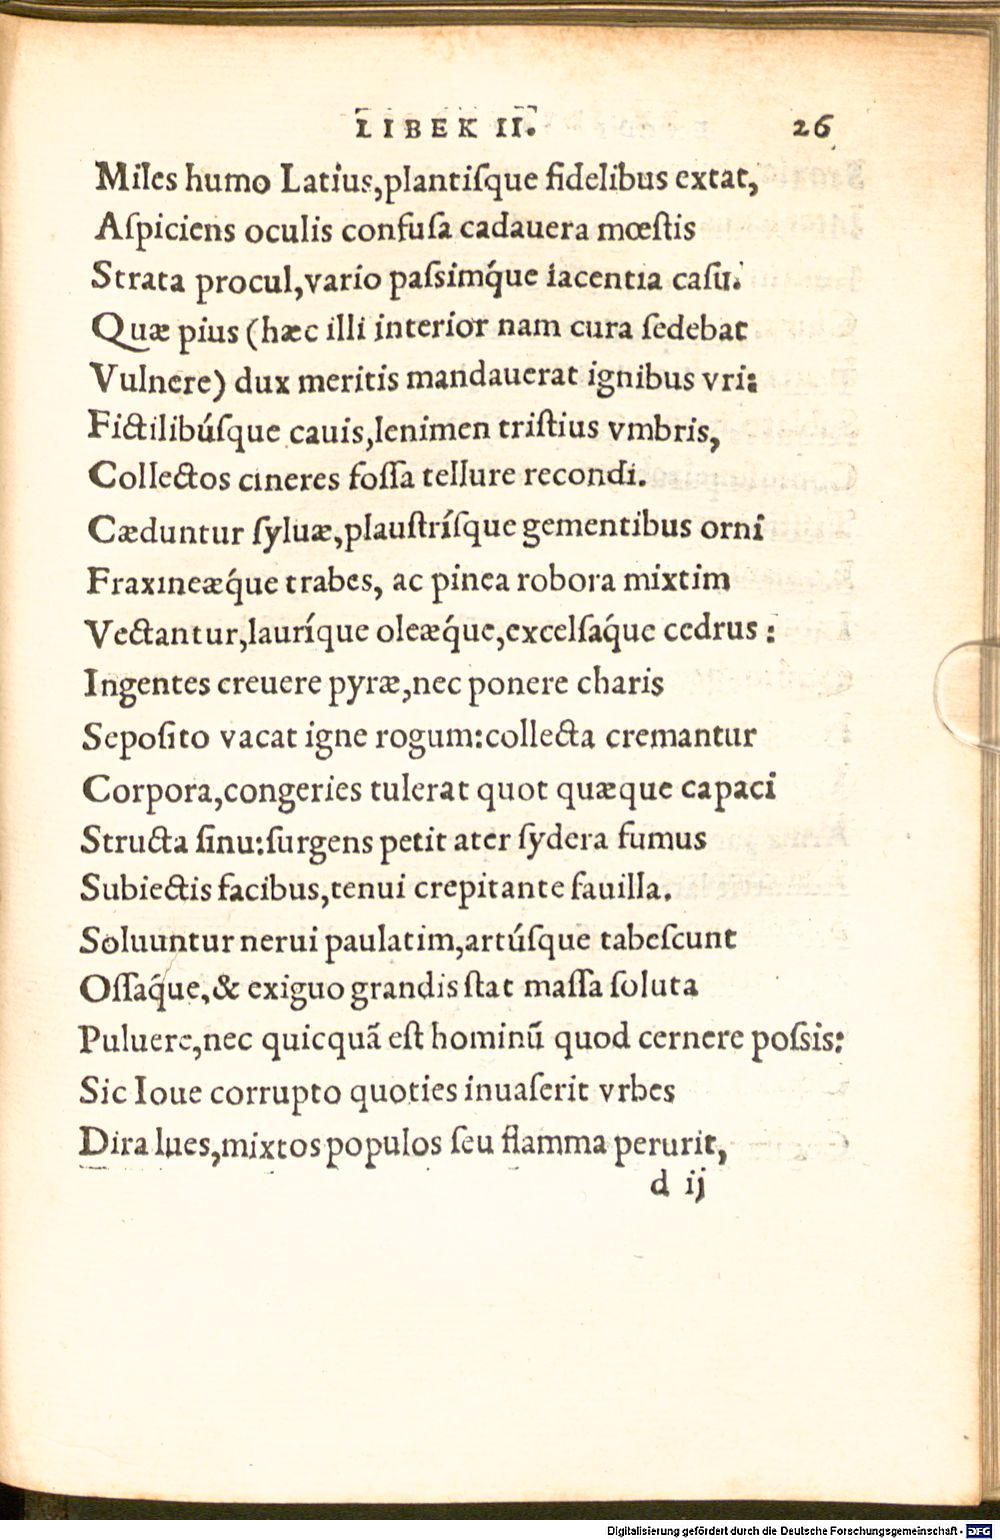 LIBER II. 26
Miles humo Latius, plantiſque fidelibus extat,
Aſpiciens oculis confuſa cadauera mœſtis
Strata procul, vario paſsimq́ue iacentia caſu.
Quæ pius (hæc illi interior nam cura ſedebat
Vulnere) dux meritis mandauerat ignibus vri:
Fictilibúſque cauis, lenimen triſtius vmbris,
Collectos cineres foſſa tellure recondi.
Cæduntur ſyluæ, plauſtríſque gementibus orni
Fraxineæq́ue trabes, ac pinea robora mixtim
Vectantur, lauríque oleæq́ue, excelſaq́ue cedrus :
Ingentes creuere pyræ, nec ponere charis
Sepoſito vacat igne rogum: collecta cremantur
Corpora, congeries tulerat quot quæque capaci
Structa ſinu: ſurgens petit ater ſydera fumus
Subiectis facibus, tenui crepitante fauilla.
Soluuntur nerui paulatim, artúſque tabeſcunt
Oſſaq́ue, & exiguo grandis ſtat maſſa ſoluta
Puluere, nec quicquã eſt hominũ quod cernere poſsis:
Sic Ioue corrupto quoties inuaſerit vrbes
Dira lues, mixtos populos ſeu flamma perurit,
d ij
Digitalisierung gefördert durch die Deutsche Forschungsgemeinschaft - DFG